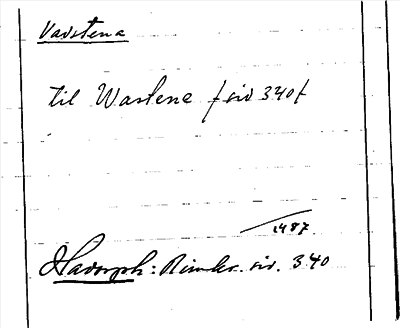 Vadstena
til Wastene /sid 340/
1487.
Hadorph: Rimkr. sid. 340